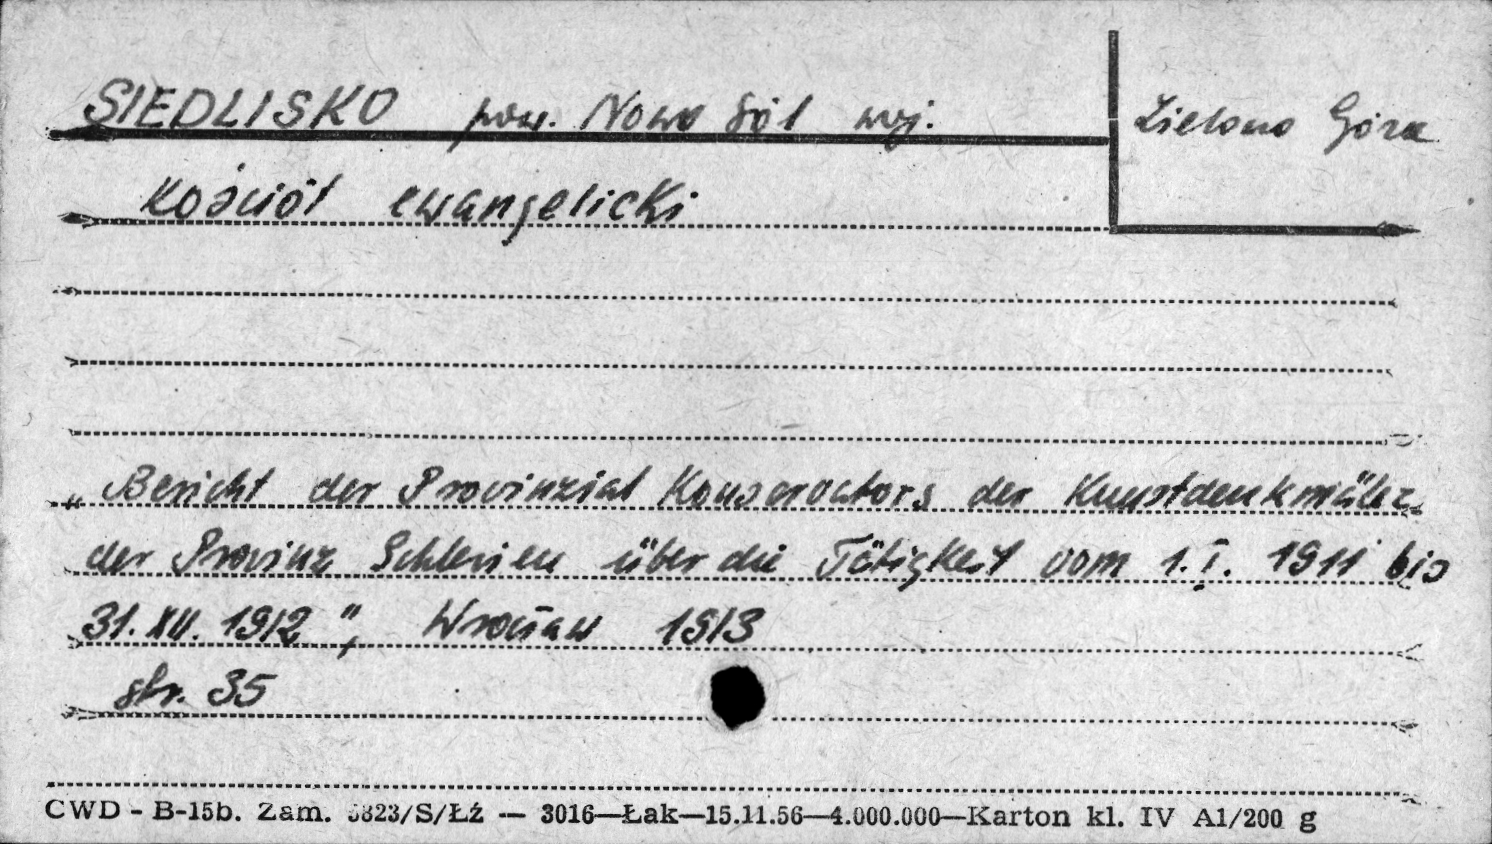 SIEDLISKO pow. Nowa Sól woj. Zielona Góra
Kościół ewangelicki
"Bericht der Provinzial Konservators der Kunstdenkmäler
der Provinz Schlesien über die Tätigkeit vom 1.I. 1911 bis
31.XII. 1912", Wrocław 1913
str. 35
CWD - B-15b. Zam. 5823/S/Łź — 3016—Łak—15.11.56—4.000.000—Karton kl. IV A1/200 g